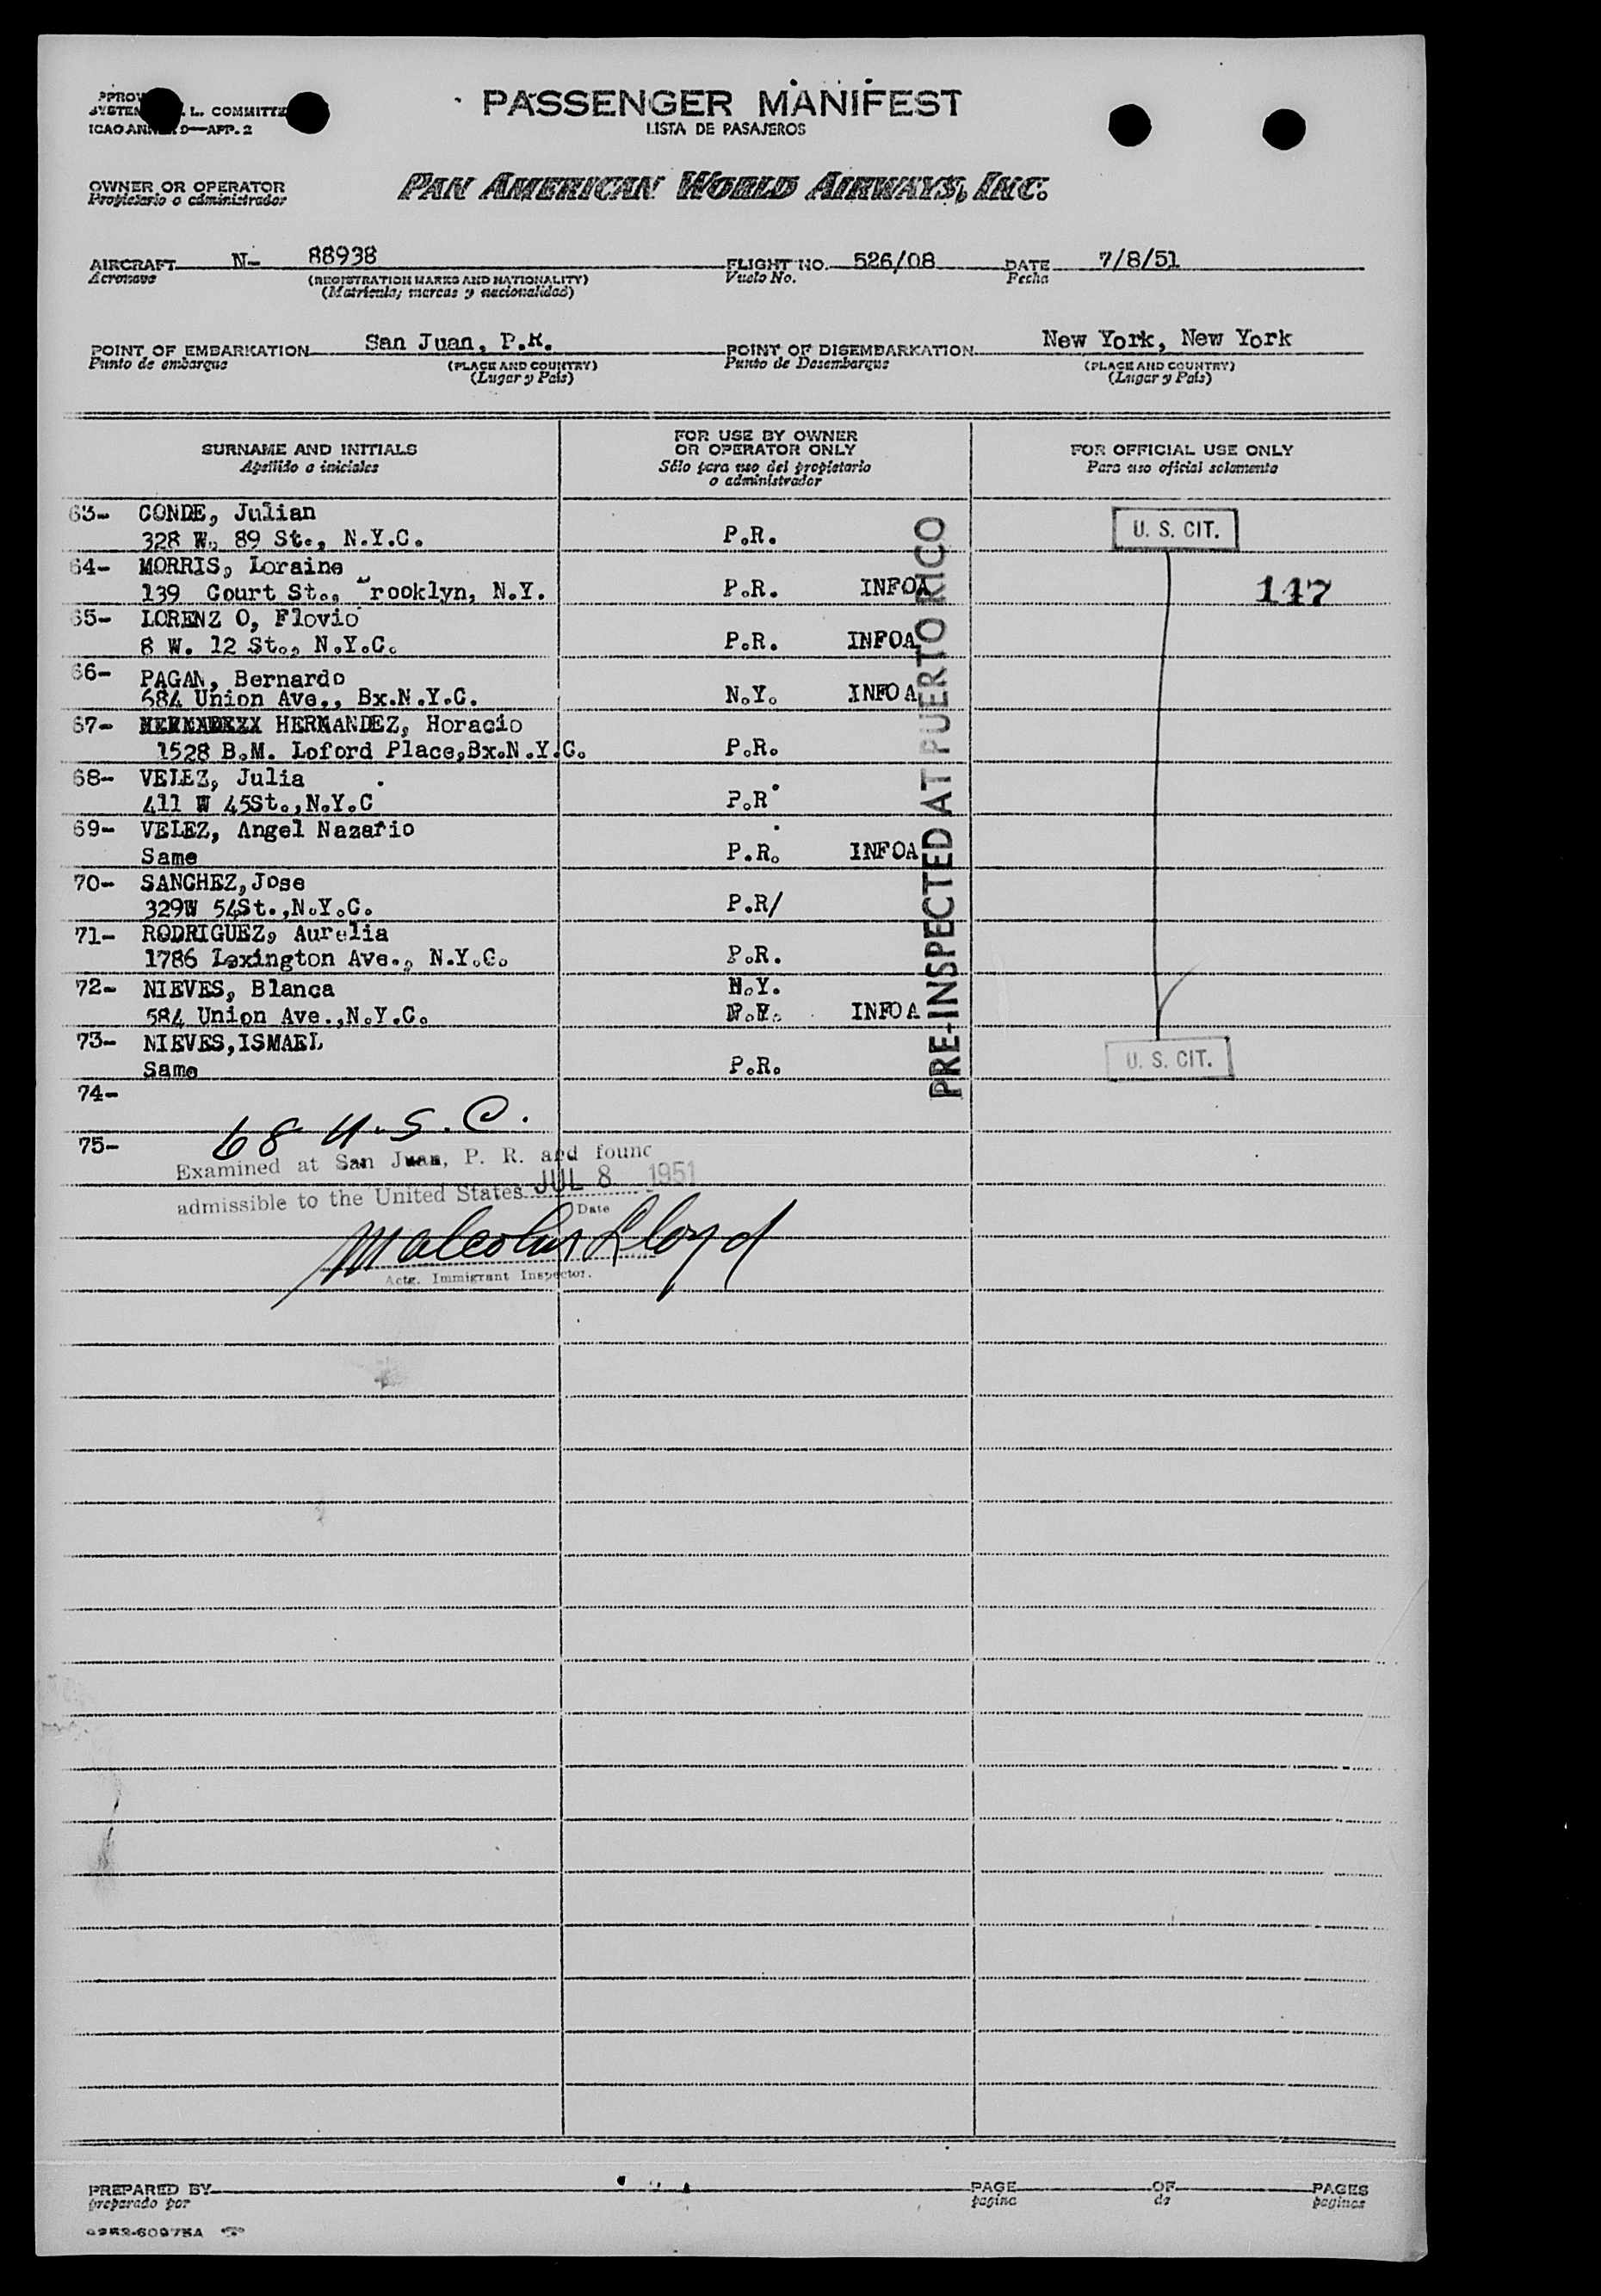 PASSENGER MANIFEST
LISTA DE PASAJEROS
L. COMMITTE
ICAO ANN 9—APP. 2
OWNER OR OPERATOR
Propietario o administrador
PAN AMERICAN WORLD AIRWAYS, INC.
AIRCRAFT N- 88938 FLIGHT NO. 526/08 DATE 7/8/51
Aeronave (REGISTRATION MARKS AND NATIONALITY) Vuelo No. Fecha
(Matricula; marcas y nacionalidad)
POINT OF EMBARKATION San Juan, P.R. POINT OF DISEMBARKATION New York, New York
Punto de embarque (PLACE AND COUNTRY) Punto de Desembarque (PLACE AND COUNTRY)
(Lugar y País) (Lugar y País)
SURNAME AND INITIALS
Apellido o iniciales
FOR USE BY OWNER
OR OPERATOR ONLY
Sólo para uso del propietario
o administrador
FOR OFFICIAL USE ONLY
Para uso oficial solamente
63- CONDE, Julian
328 W. 89 St., N.Y.C. P.R. U. S. CIT.
64- MORRIS, Loraine
139 Court St., rooklyn, N.Y. P.R. INFOA 147
65- LORENZ O, Flovio
8 W. 12 St., N.Y.C. P.R. INFOA
66- PAGAN, Bernardo
684 Union Ave., Bx.N.Y.C. N.Y. INFOA
67- HERNANDEZ, Horacio
1528 B.M. Loford Place,Bx.N.Y.C. P.R.
68- VELEZ, Julia
411 W 45St.,N.Y.C P.R
69- VELEZ, Angel Nazario
Same P.R. INFOA
70- SANCHEZ,Jose
329W 54St.,N.Y.C. P.R/
71- RODRIGUEZ, Aurelia
1786 Lexington Ave., N.Y.C. P.R.
72- NIEVES, Blanca N.Y.
584 Union Ave.,N.Y.C. INFOA
73- NIEVES,ISMAEL
Same P.R. U. S. CIT.
PRE-INSPECTED AT PUERTO RICO
74-
75- 68 U.S.C.
Examined at San Juan, P. R. and found
admissible to the United States JUL 8 1951
Date
Malcolm Lloyd
Actg. Immigrant Inspector.
PREPARED BY PAGE OF PAGES
preparado por pagina de paginas